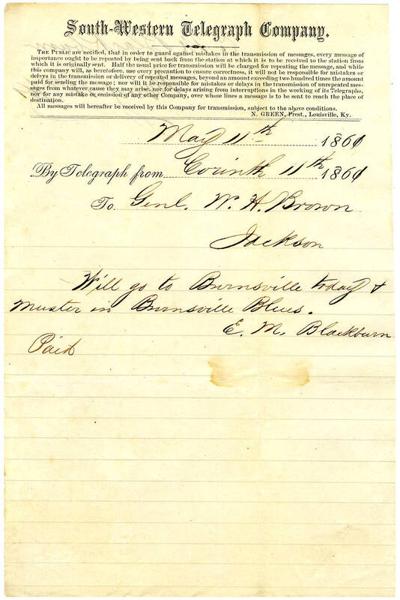 South-Western Telegraph Company.
The Public are notified, that in order to guard against mistakes in the transmission of messages, every message of
importance ought to be repeated by being sent back from the station at which it is to be received to the station from
which it is originally sent. Half the usual price for transmission will be charged for repeating the message, and while
this company will, as heretofore, use every precaution to ensure correctness, it will not be responsible for mistakes or
delays in the transmission or delivery of repeated messages, beyond an amount exceeding two hundred times the amount
paid for sending the message; nor will it be responsible for mistakes or delays in the transmission of unrepeated messages
from whatever cause they may arise, nor for delays arising from interruptions in the working of its Telegraphs,
nor for any mistake or omission of any other Company, over whose lines a message is to be sent to reach the place of
destination.
All messages will hereafter be received by this Company for transmission, subject to the above conditions.
N. GREEN, Prest., Louisville, Ky.
May 11th 1861
By Telegraph from Corinth 11th 1861
To Genl. W. H. Brown
Jackson
Will go to Burnsville today &
muster in Burnsville Blues.
E. M. Blackburn
Paid